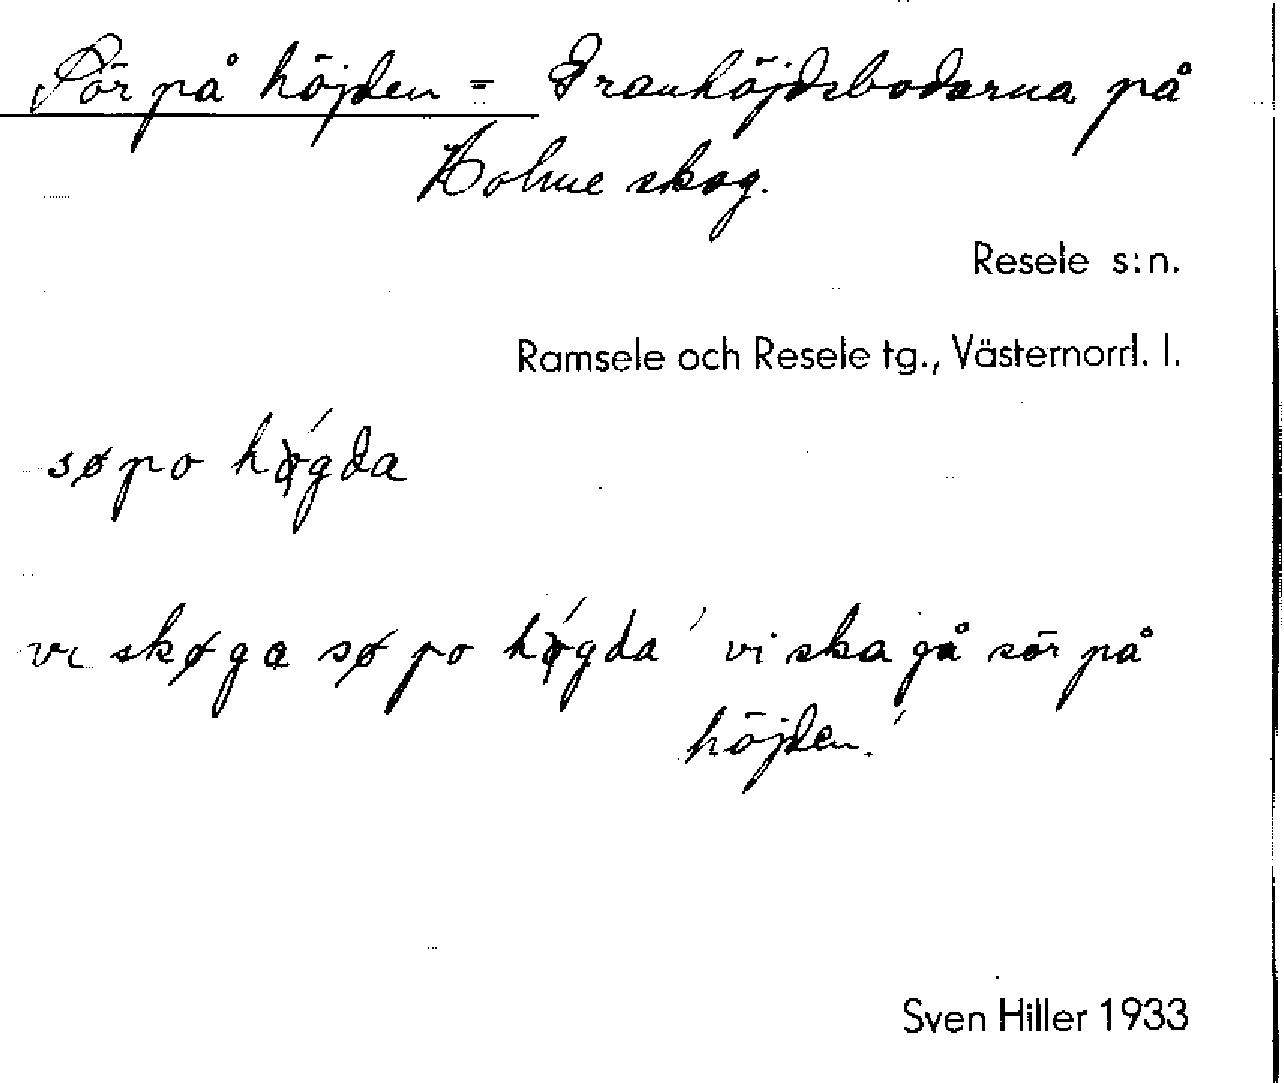 Sör på höjden = Granhöjdsbodarna på
Holme skog.
Resele s:n.
Ramsele och Resele tg., Västernorrl. l.
søpo høgda
vɩ skøga sø po høgda ' vi ska gå sör på
höjden.'
Sven Hiller 1933